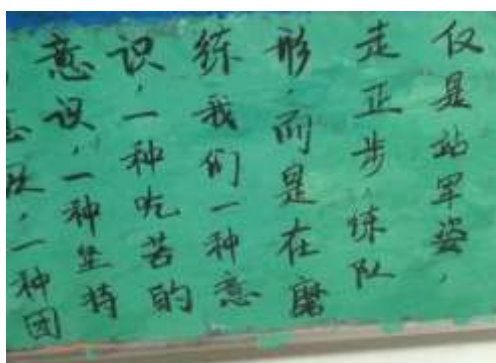 仅是站军姿，
走正步、练队
形，而是在磨
练我们一种意
识，一种吃苦的
意识，一种坚持
一种团